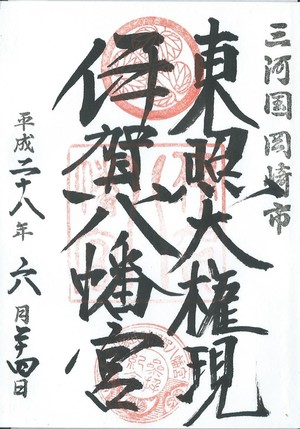 三河国岡崎市
東照大権現
伊賀八幡宮
平成二十八年六月二十四日